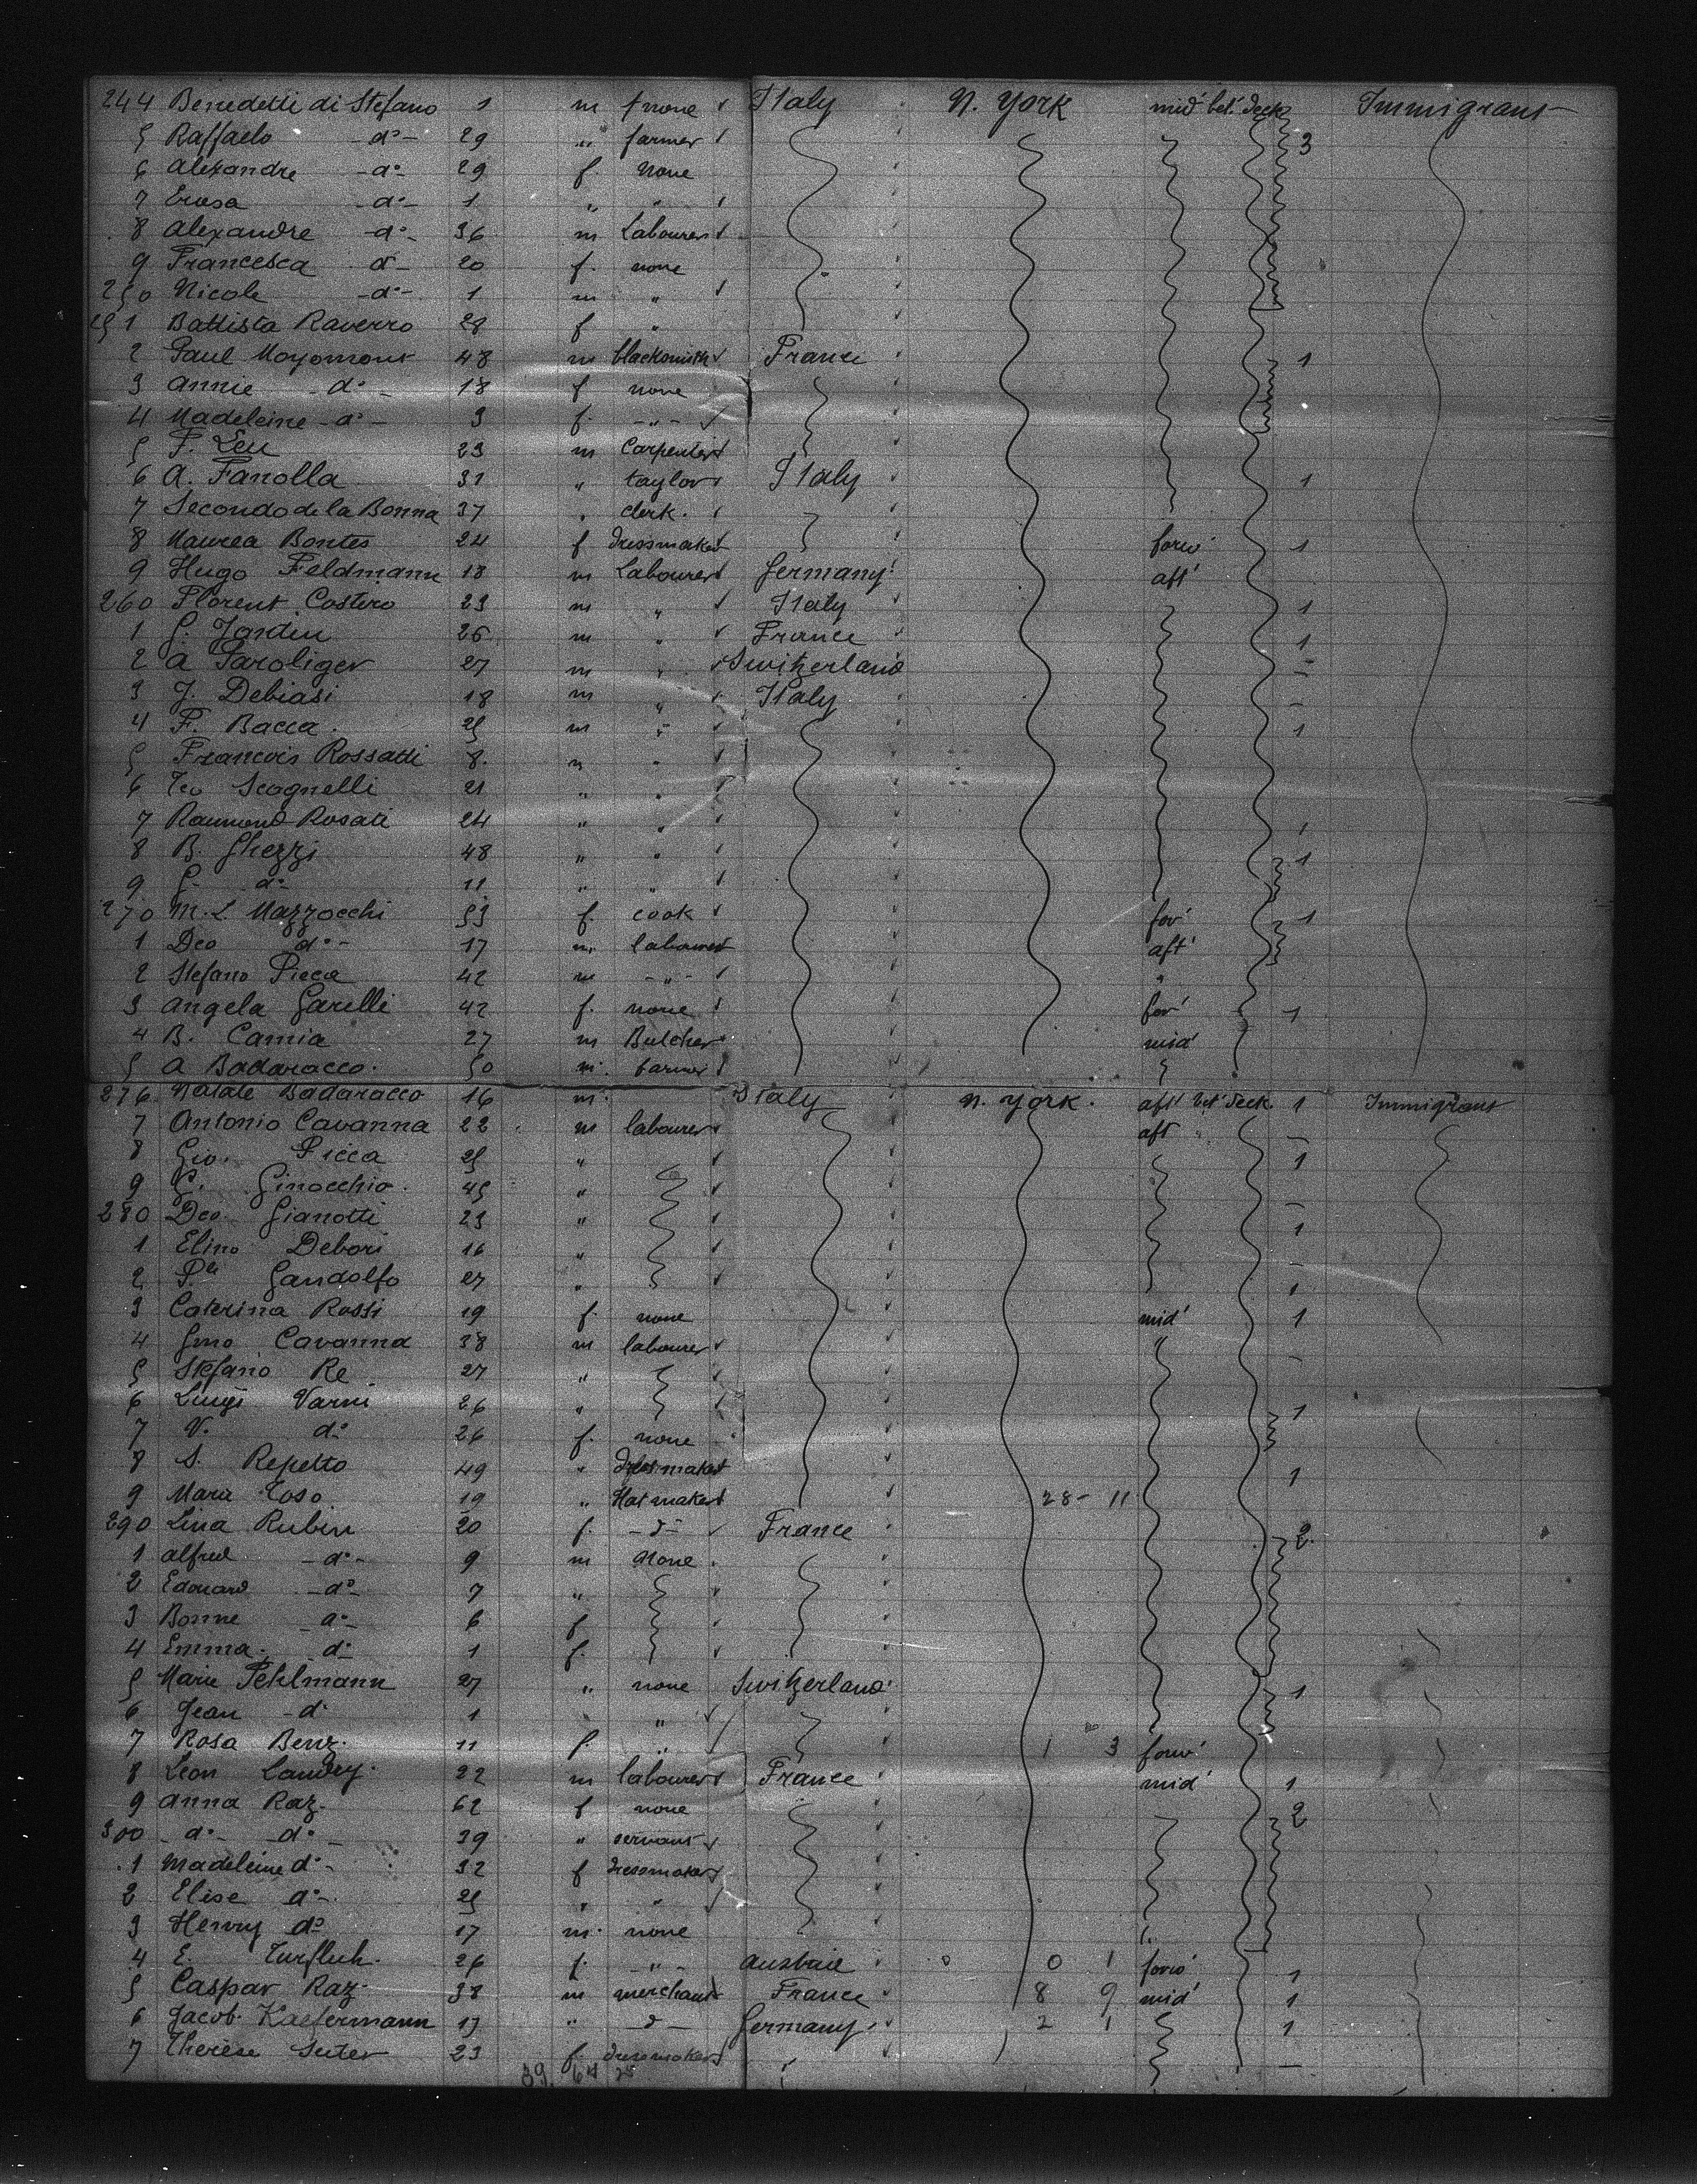 244 Benedetti di Stefano 1 m none Italy N. York mid' bet. deck Immigrant
5 Raffaelo -do- 29 " farmer 3
6 Alexandre -do- 29 f. none
7 -do- 1 " "
8 Alexandre -do- 36 m Labourer
9 Francesca do- 20 f. none
250 Nicole -do- 1 m "
251 Battista Raverro 28 f "
2 Paul 48 m blacksmith France 1
3 Annie do- 18 f none
4 Madeleine -do- 3 f. -"-
5 F. Leu 23 m Carpenter
6 A. Fanolla 31 " taylor Italy 1
7 Secondo de la Bonna 37 " clerk.
8 Bontes 24 f dressmaker forw' 1
9 Hugo Feldmann 18 m Labourer Germany aft'
260 Florent Costero 23 m " Italy 1
1 G. Jardin 26 m " France 1
2 A 27 m " Switzerland -
3 J. Debiasi 18 m " Italy -
4 F. Bacca. 25 m " 1
5 Francois Rossatti 8. " "
6 Scagnelli 21 " "
7 Raimond Rosati 24 " " 1
8 B. Ghezzi 48 " " 1
9 G. do- 11 " "
270 M. L. Mazzocchi 53 f. cook for' 1
1 Deo do- 17 m. labourer aft'
2 Stefano Picca 42 m -"- "
3 Angela Garelli 42 f. none for' 1
4 B. Camia 27 m Butcher mid'
5 A Badaracco. 50 m. farmer
276 Natale Badaracco 16 m. Italy N. York. aft' bet' deck. 1 Immigrant
7 Antonio Cavanna 22 m labourer aft -
8 Gio. Picca 25 " 1
9 G. Ginocchio. 45 "
280 Deo Gianotti 23 " -
1 Elino Debori 16 " 1
2 Gandolfo 27 " 1
3 Caterina Rossi 19 f. none mid' 1
4 Gmo Cavanna 38 m labourer " -
5 Stefano Re 27 "
6 Luigi Varni 26 " 1
7 V. do 26 f. none
8 S. Repetto 49 " dressmaker 1
9 Marie Toso 19 " Hatmaker 28- 11
290 Lina Rubin 20 f. -d- France 2
1 Alfred -do- 9 m none
2 Edouard -do- 7 "
3 Bonne do- 6 f
4 Emma do- 1 f.
5 Marie Pehlmann 27 " none Switzerland 1
6 Jean -do 1 "
7 Rosa Benz. 11 f. " 1 3 forw'
8 Leon Landry. 22 m labourer France mid' 1
9 Anna Raz. 62 f none 2
300 -do- do- 39 " servant
1 Madeleine do- 32 f dressmaker
2 Elise do- 25 " "
3 Henry do 17 m. none
4 E. Turfluh. 26 f. -"- 0 1 forw' 1
5 Caspar Raz. 38 m merchant France 8 9 mid' 1
6 Jacob 17 " -d- Germany 2 1 1
7 Therese Suter 23 f. dressmaker -
39 64